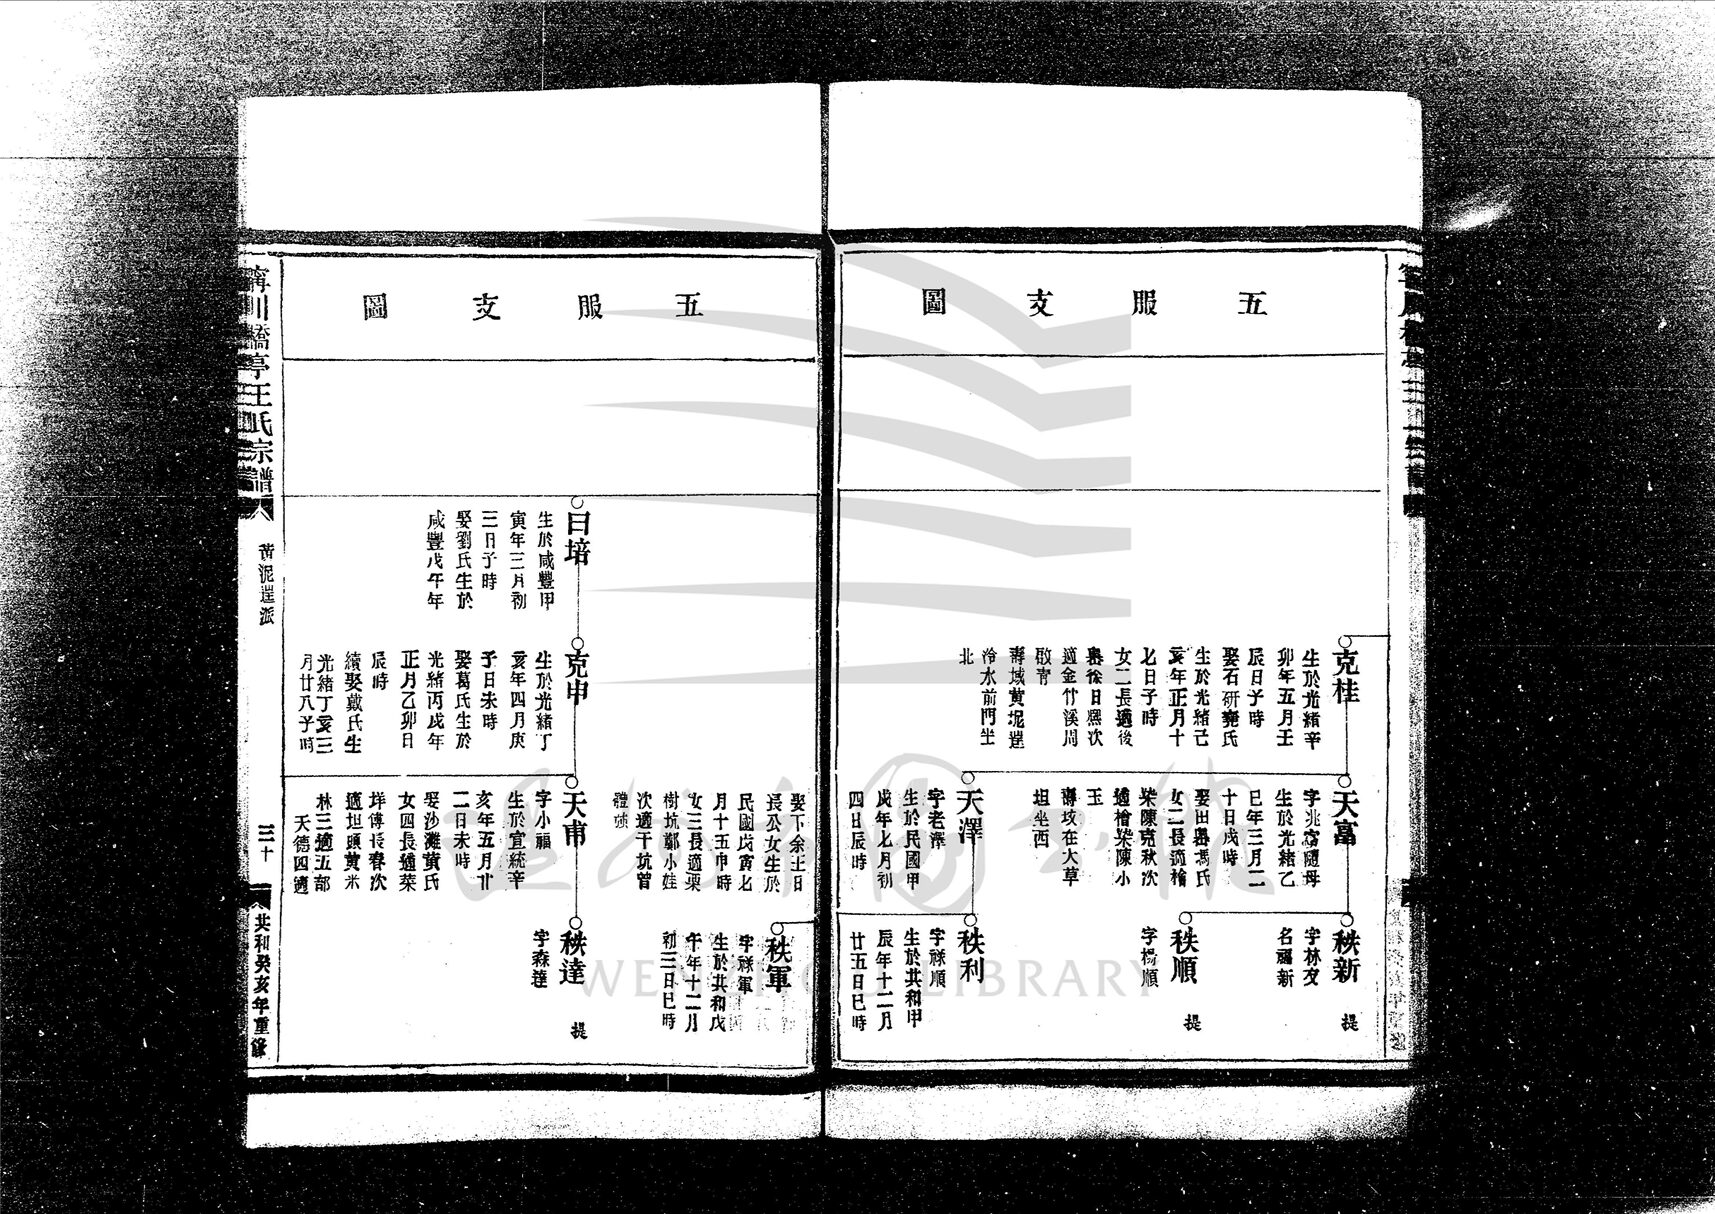 五服支圖
克桂
生於光緒辛
卯年五月壬
辰日子時
娶石研甕氏
生於光緒己
亥年正月十
七日子時
女二長適後
嶴徐日熙次
適金竹溪周
啟寄
壽域黄坭垟
冷水前門坐
北
天富
字兆富隨母
生於光緒乙
巳年三月二
十日戌時
娶田嶴馮氏
女二長適檜
柴陳克秋次
適檜柴陳小
玉
壽坟在大草
坦坐西
秩新
字林友
名福新
提
秩順
字楊順
提
天澤
字老澤
生於民國甲
戌年七月初
四日辰時
娶下余王日
長公女生於
民國戊寅七
月十五申時
女三長適栗
樹坑鄭小娃
次適干坑曾
體強
秩利
字祿順
生於共和甲
辰年十二月
廿五日巳時
五服支圖
秩軍
字祿軍
生於共和戊
午年十二月
初三日巳時
日培
生於咸豐甲
寅年三月初
三日子時
娶劉氏生於
咸豐戊午年
克申
生於光緒丁
亥年四月庚
子日未時
娶葛氏生於
光緒丙戌年
正月乙卯日
辰時
續娶戴氏生
光緒丁亥三
月廿八子時
天甫
字小福
生於宣統辛
亥年五月廿
二日未時
娶沙灘黃氏
女四長適葉
垟傅長春次
適坦頭黃米
林三適五部
天德四適
秩達
字森達
提
寗川橋亭王氏宗譜
黃泥垟派
三十
共和癸亥年重修
WENZHOU LIBRARY